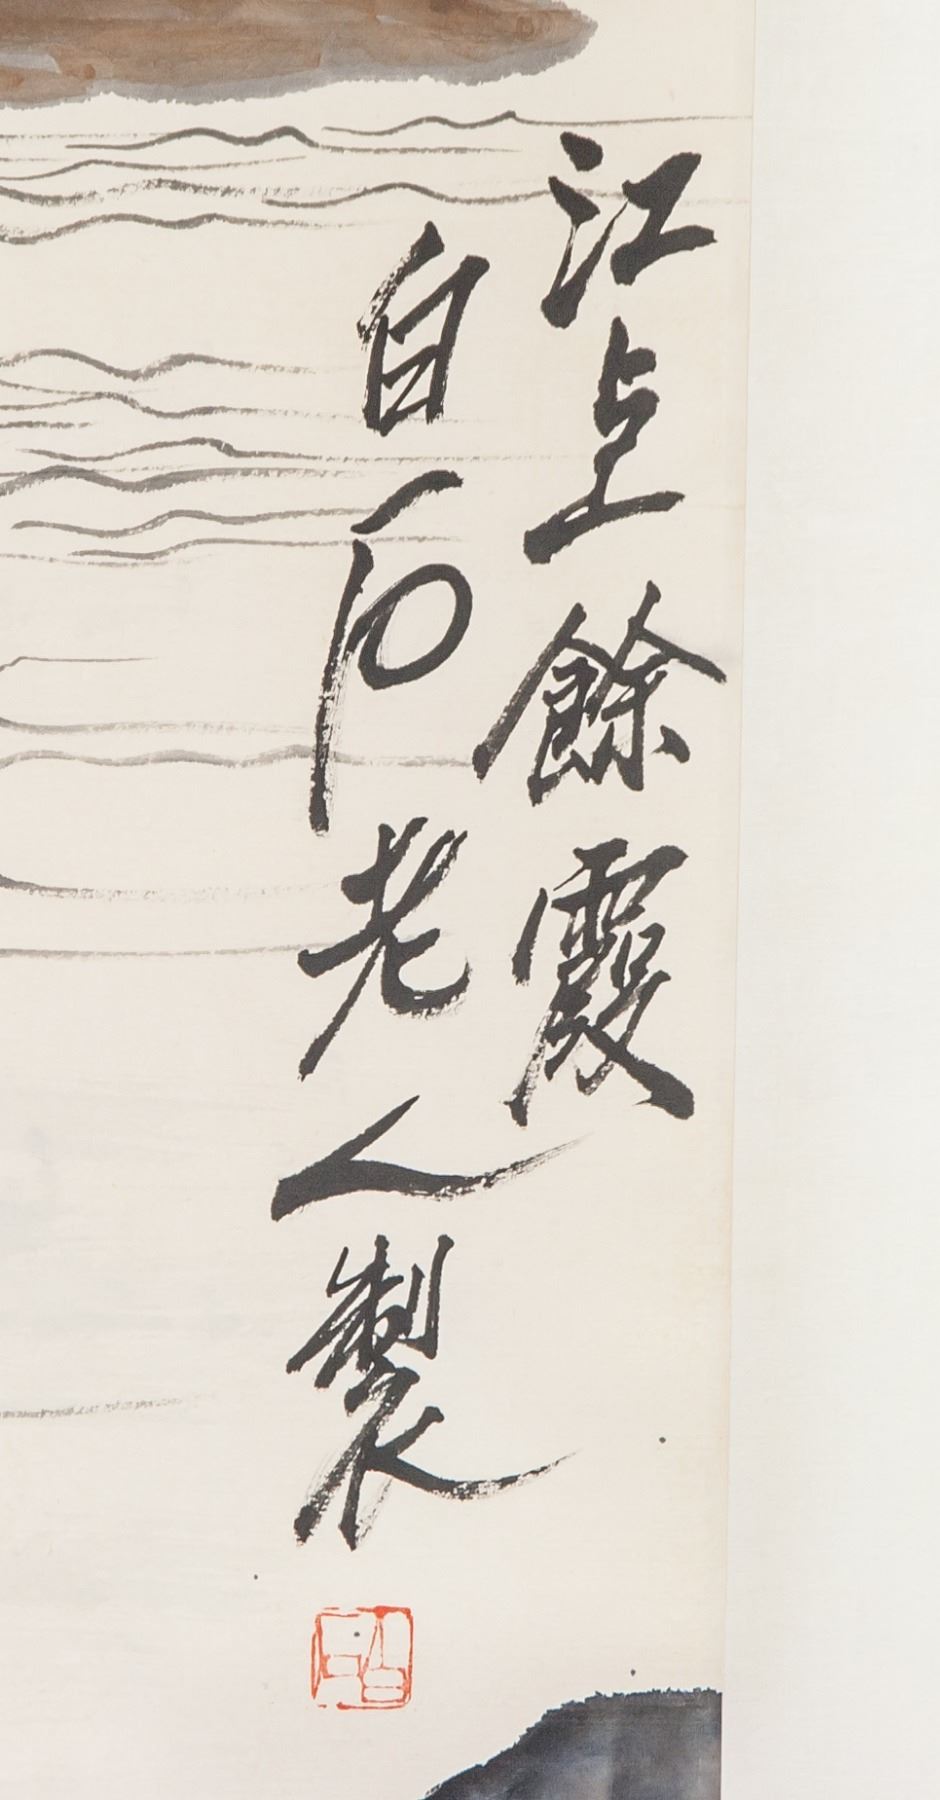 江上餘霞
白石老人製
白石